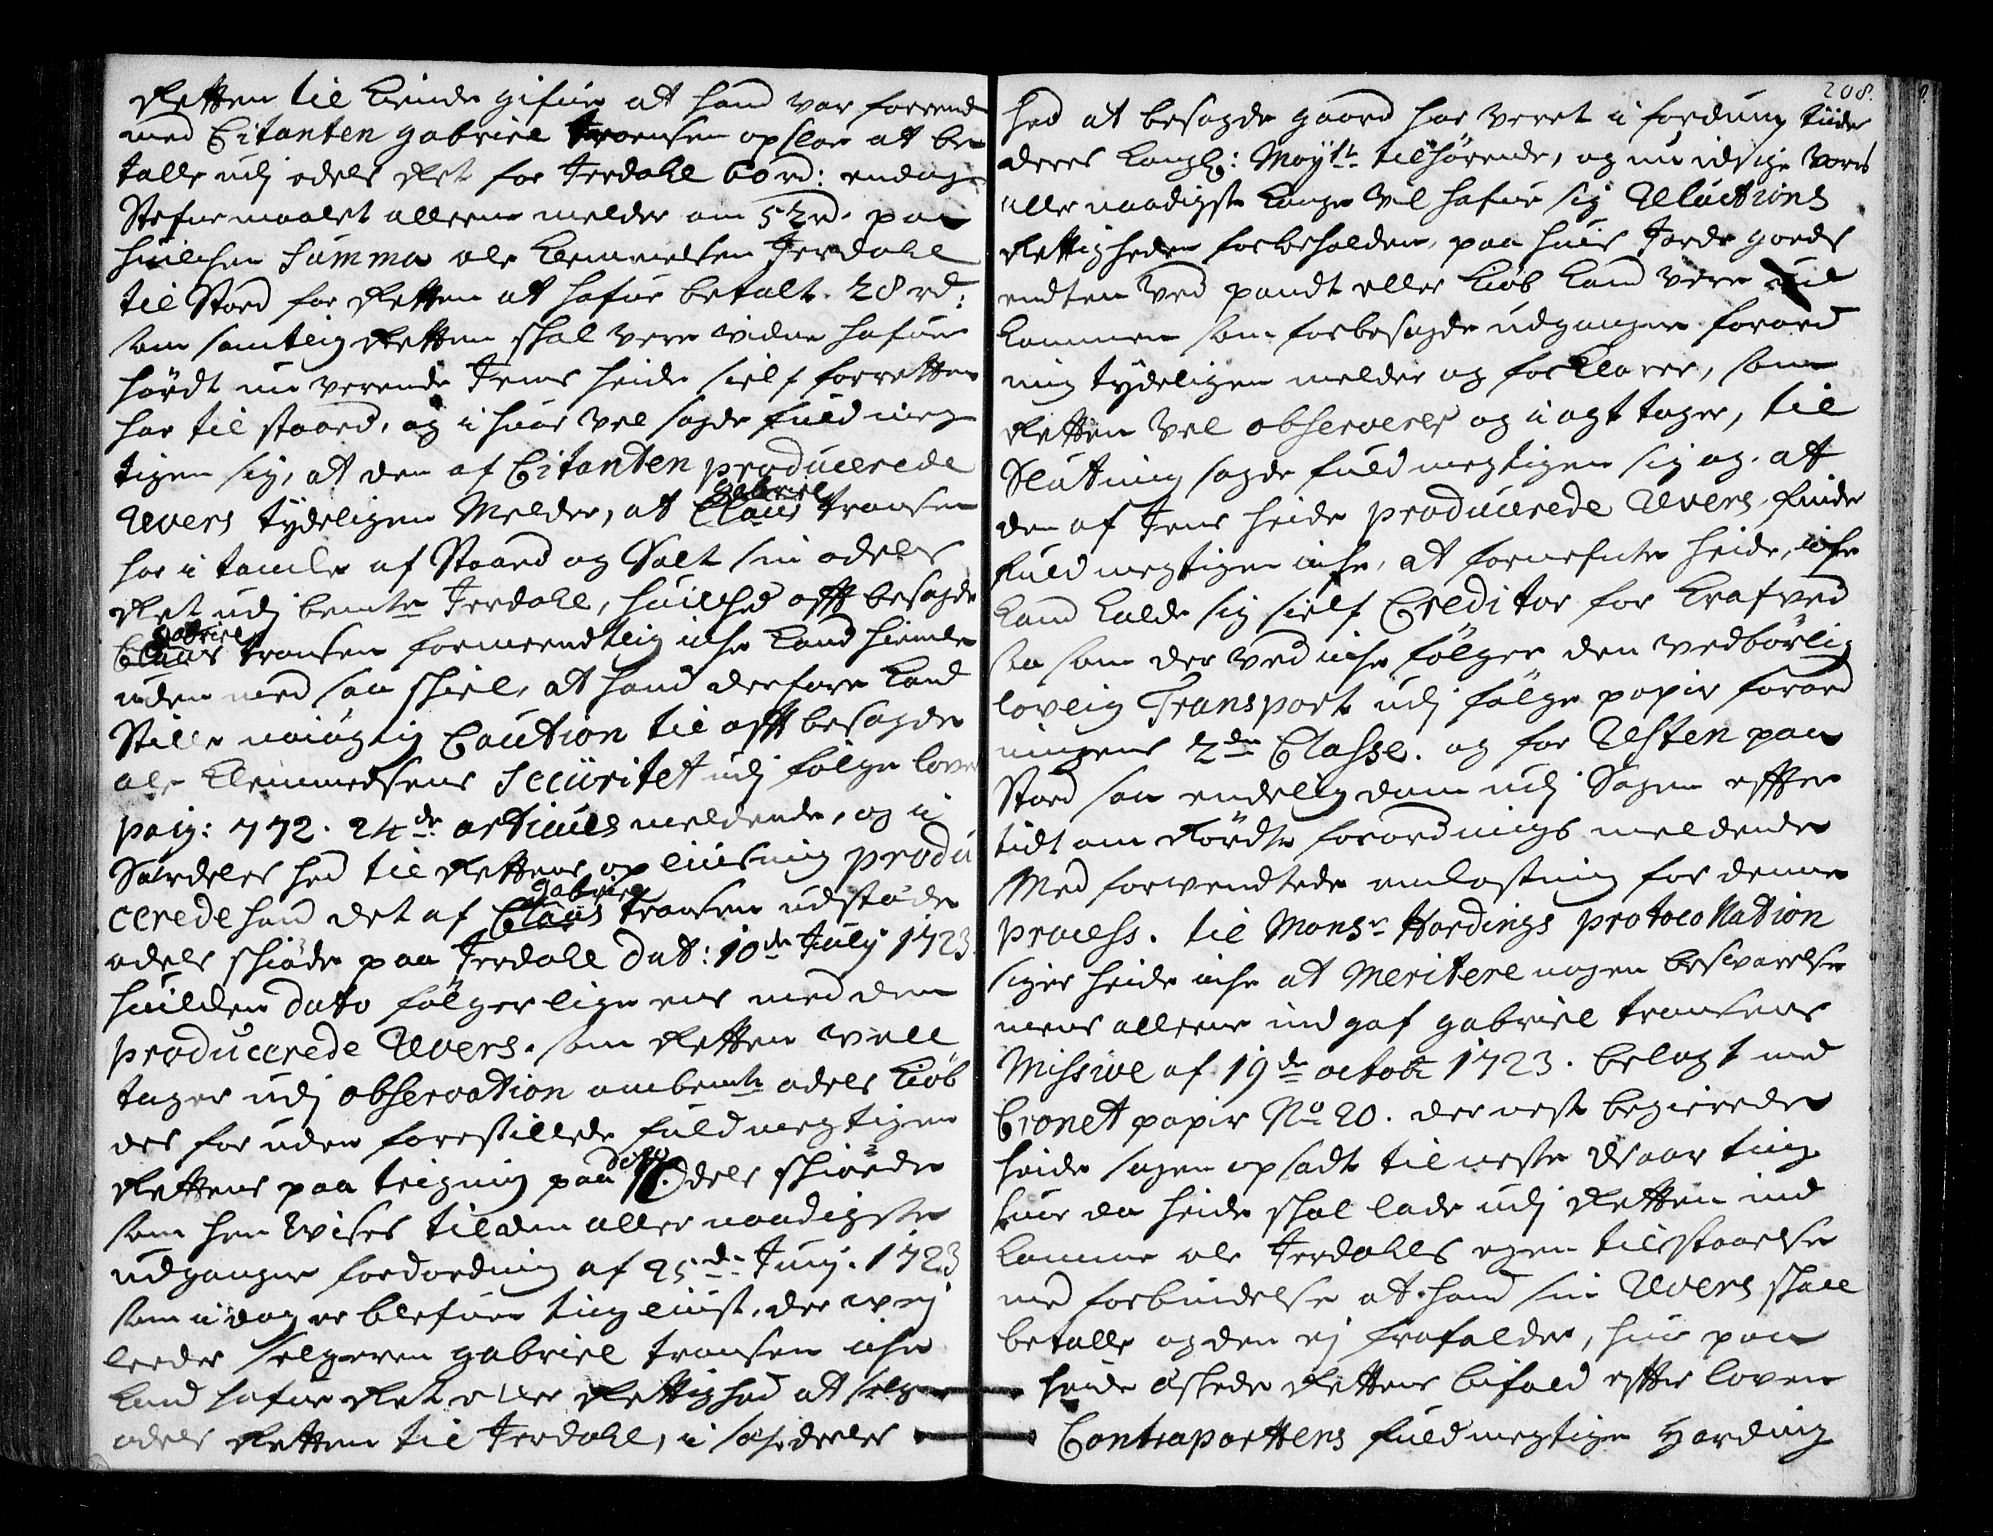 Retten til kiende gifver at hand var foreend
med Citanten gabriel transen opslae at be
talle udj odels Ret for Jerdahl 60 rd: endog
Stefnemaalet alleene melder om 52 rd. paa
huilchen Summa ole Clemmetsen Jerdahl
til Stoed for Retten at hafve betalt 28 rd:
som samtlig Retten skal vere vidne hafver
hördt nu verende Jens heide sielf for retten
har til staaed, og i huor vel sagde fuld meg
tigen sig, at den af Citanten producerede
Revers tydeligen Melder, at gabriel Claus transen
har i tamle af Staaed og Solt sin odels
Ret udj bemte Jerdahl, huilched offt besagde
gabriel Claus transen formeendtlig iche kand hiemle
uden med saa skiel, at hand derfore kand
Stille nöiagtig Caution til offt besagde
ole Clemmetsens Securitet udj fölge lovens
pag: 772. 24de articuls meldende, og i
Særdeles hed til Rettens opliusning produ
cerede hand det af gabriel Claus transen udstæde
odels skiöde paa Jerdahl Dat: 10de July 1723
huilden dato fölger lige ens med den
producerede Revers. som Retten vell
tager udj observation om bemte odels kiöb
des for uden forestillede fuldmegtigen
Rettens paa teigning paa dito Odels skiöede
som hen viser til den aller naadigste
udgangne fordordning af 25de Juny 1723
som i dag er blefven tinglüust. der vej
leeder selgeren gabriel transen iche
kand hafve Ret eller Rettighed at selge
odels Retten til Jerdahl, i sær deeles
208.
hed at besagde gaard har veret i fordum tiider
deres kongl: Mayts tilhörende, og nu idzige vores
aller naadigste konge vil hafve sig Reluctions
Rettigheden forbeholden, paa huis Jorde goeds
endten ved pandt eller kiöb kand vere til
kommen som forbesagde udgangne foroed
ning tydeligen melder og forklarer, som
Retten vel observerer og i agt tager, til
Slutning sagde fuldmegtigen sig og. at
den af Jens heide producerede Revers finder
fuldmegtigen iche, at fornefnte heide, iche
kand kalde sig sielf Creditor for kraf ved
saa som der ved iche fölger den vedbörlig
lovlig Transport udj fölge papir foroed
ningens 2den Classe. og for Resten paa
Stoed saa endelig dom udj Sagen effter
tidt om Rördte forordnings meldende
Med forvendtede omkostning for denne
process. til Monsr Hardings protocollation
siger heide iche at meritere nogen besvarelse
mens alleene ind gaf gabriel transens
Missive af 19de octobr 1723. belagt med
Cronet papir No 20. der nest begierede
heide sagen opsadt til neste Waar ting
huor da heide skal lade udj Retten ind
komme ole Jerdahls egen tilstaaelse
med forbindelse at hand sin Revers skall
betalle og den ej frafalder, hvor paa
heide æskede Rettens bifald effter loven
Contrapartens fuldmegtige Harding